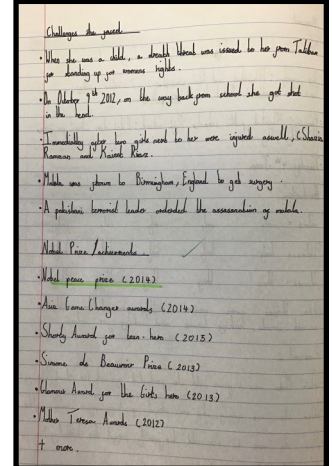 Challenges she faced
• When she was a child, a death threat was issued to her from Taliban
for standing up for womens rights.
• On October 9th 2012, on the way back from school she got shot
in the head.
• Immediatley after two girls next to her were injured aswell, (Shazia
Ramzan and Kainat Riaz).
• Malala was flown to Birmingham, England to get surgery.
• A pakistani terrorist leader ordered the assassination of malala.
Nobel Prize / achievements
• Nobel peace prize (2014)
• Asia Game Changer awards (2014)
• Shorty Award for teen hero (2013)
• Simone de Beauvoir Prize (2013)
• Glamour Award for the Girls hero (2013)
• Mother Teresa Awards (2012)
+ more.